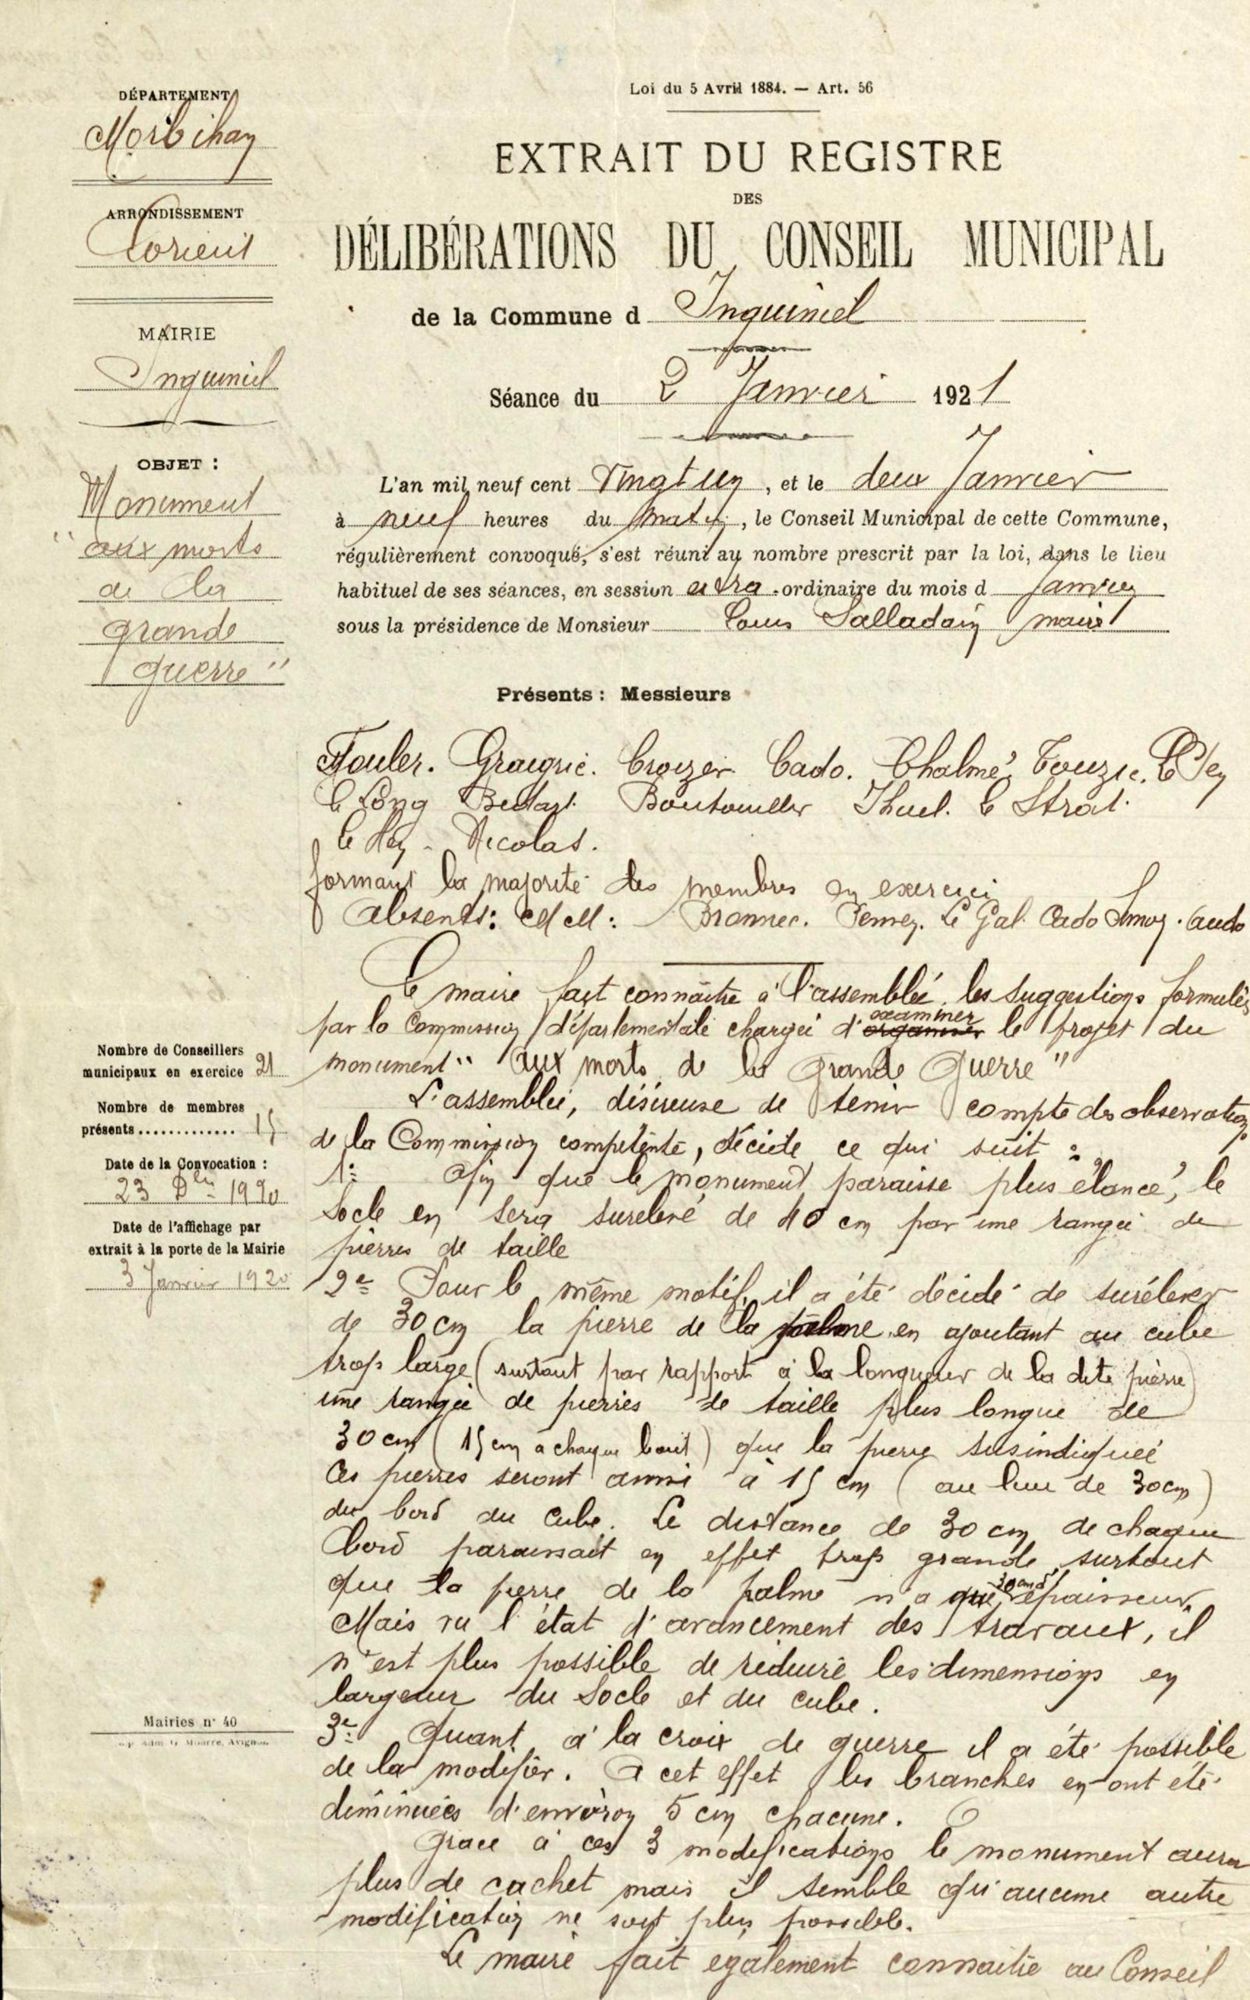 DÉPARTEMENT
Morbihan
ARRONDISSEMENT
Lorient
MAIRIE
Inguiniel
OBJET :
Monument
"aux morts
de la
grande
guerre"
Nombre de Conseillers
municipaux en exercice 21
Nombre de membres
présents ............. 15
Date de la Convocation :
23 Dbre 1920
Date de l'affichage par
extrait à la porte de la Mairie
3 Janvier 1920
Mairies n° 40
Loi du 5 Avril 1884. — Art. 56
EXTRAIT DU REGISTRE
DES
DÉLIBÉRATIONS DU CONSEIL MUNICIPAL
de la Commune d Inguiniel
Séance du 2 Janvier 1921
L'an mil neuf cent vingt un, et le deux Janvier
à neuf heures du matin, le Conseil Municipal de cette Commune,
régulièrement convoqué, s'est réuni au nombre prescrit par la loi, dans le lieu
habituel de ses séances, en session extra-ordinaire du mois d Janvier
sous la présidence de Monsieur Louis Salladain maire
Présents : Messieurs
Fouler. Graignic. Croizer. Cado. Chalmé, Touzic.
Le Long Boutouiller Thuel. Le Strat.
Nicolas.
formant la majorité des membres en exercice
Absents: MM: Bronnec. Le Gal. Cado
Le maire fait connaître à l'assemblée les suggestions formulées
par la Commission départementale chargée d'examiner le projet du
monument "aux morts de la Grande Guerre"
L'assemblée, désireuse de tenir compte des observations
de la Commission compétente, décide ce qui suit :
1° Afin que le monument paraisse plus élancé, le
Socle en sera surelevé de 40 cm par une rangée de
pierres de taille
2e Pour le même motif, il a été décidé de surélever
de 30 cm la pierre de la palme en ajoutant au cube
trop large (surtout par rapport à la longueur de la dite pierre)
une rangée de pierres de taille plus longue de
30 cm (15 cm à chaque bout) que la pierre susindiquée
Ces pierres seront ainsi à 15 cm (au lieu de 30 cm)
du bord du cube. La distance de 30 cm de chaque
bord paraissait en effet trop grande surtout
que la pierre de la palme n'a que 30 cm d'épaisseur
Mais vu l'état d'avancement des travaux, il
n'est plus possible de réduire les dimensions en
largeur du Socle et du cube.
3e Quant à la croix de guerre il a été possible
de la modifier. A cet effet les branches en ont été
diminuées d'environ 5 cm chacune.
Grace à ces 3 modifications le monument aura
plus de cachet mais il semble qu'aucune autre
modification ne soit plus possible.
Le maire fait également connaitre au Conseil